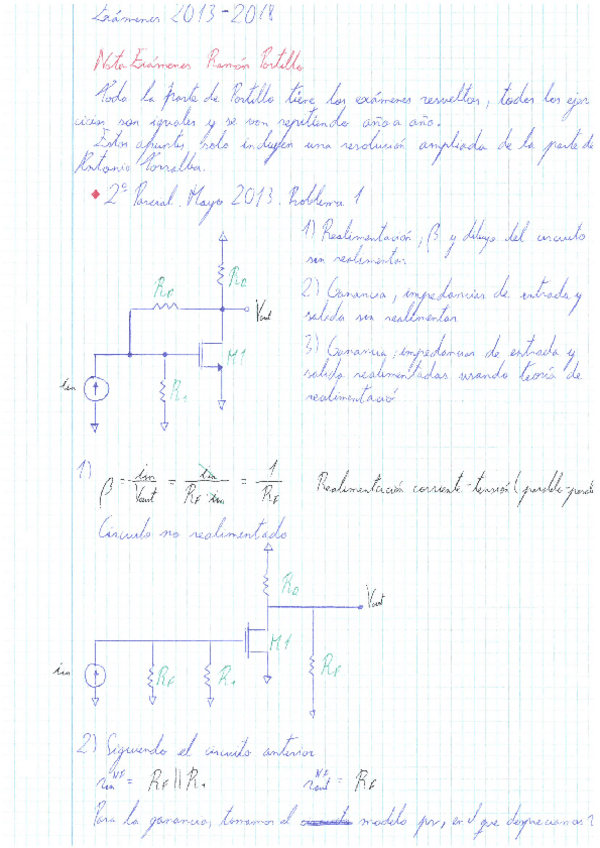 Exámenes 2013-2018
Nota Exámenes Ramón Portillo
Toda la parte de Portillo tiene los exámenes resueltos, todos los ejer
cicios son iguales y se van repitiendo año a año.
Estos apuntes solo incluyen una resolución ampliada de la parte de
Antonio Torralba.
2º Parcial. Mayo 2013. Problema 1
1) Realimentación, β y dibujo del circuito
sin realimentar
2) Ganancia, impedancias de entrada y
salida sin realimentar
3) Ganancia, impedancias de entrada y
salida realimentadas usando teoría de
realimentació
RD
RF
Vout
M1
iin
R1
1) β = iin/Vout = iin/(RF·iin) = 1/RF Realimentación corriente-tensión (paralelo-paralel
Circuito no realimentado
RD
Vout
M1
iin
RF
R1
RF
2) Siguiendo el circuito anterior
rin^NF = RF||R1 rout^NF = RF
Para la ganancia, tomamos el modelo por, en el que despreciamos